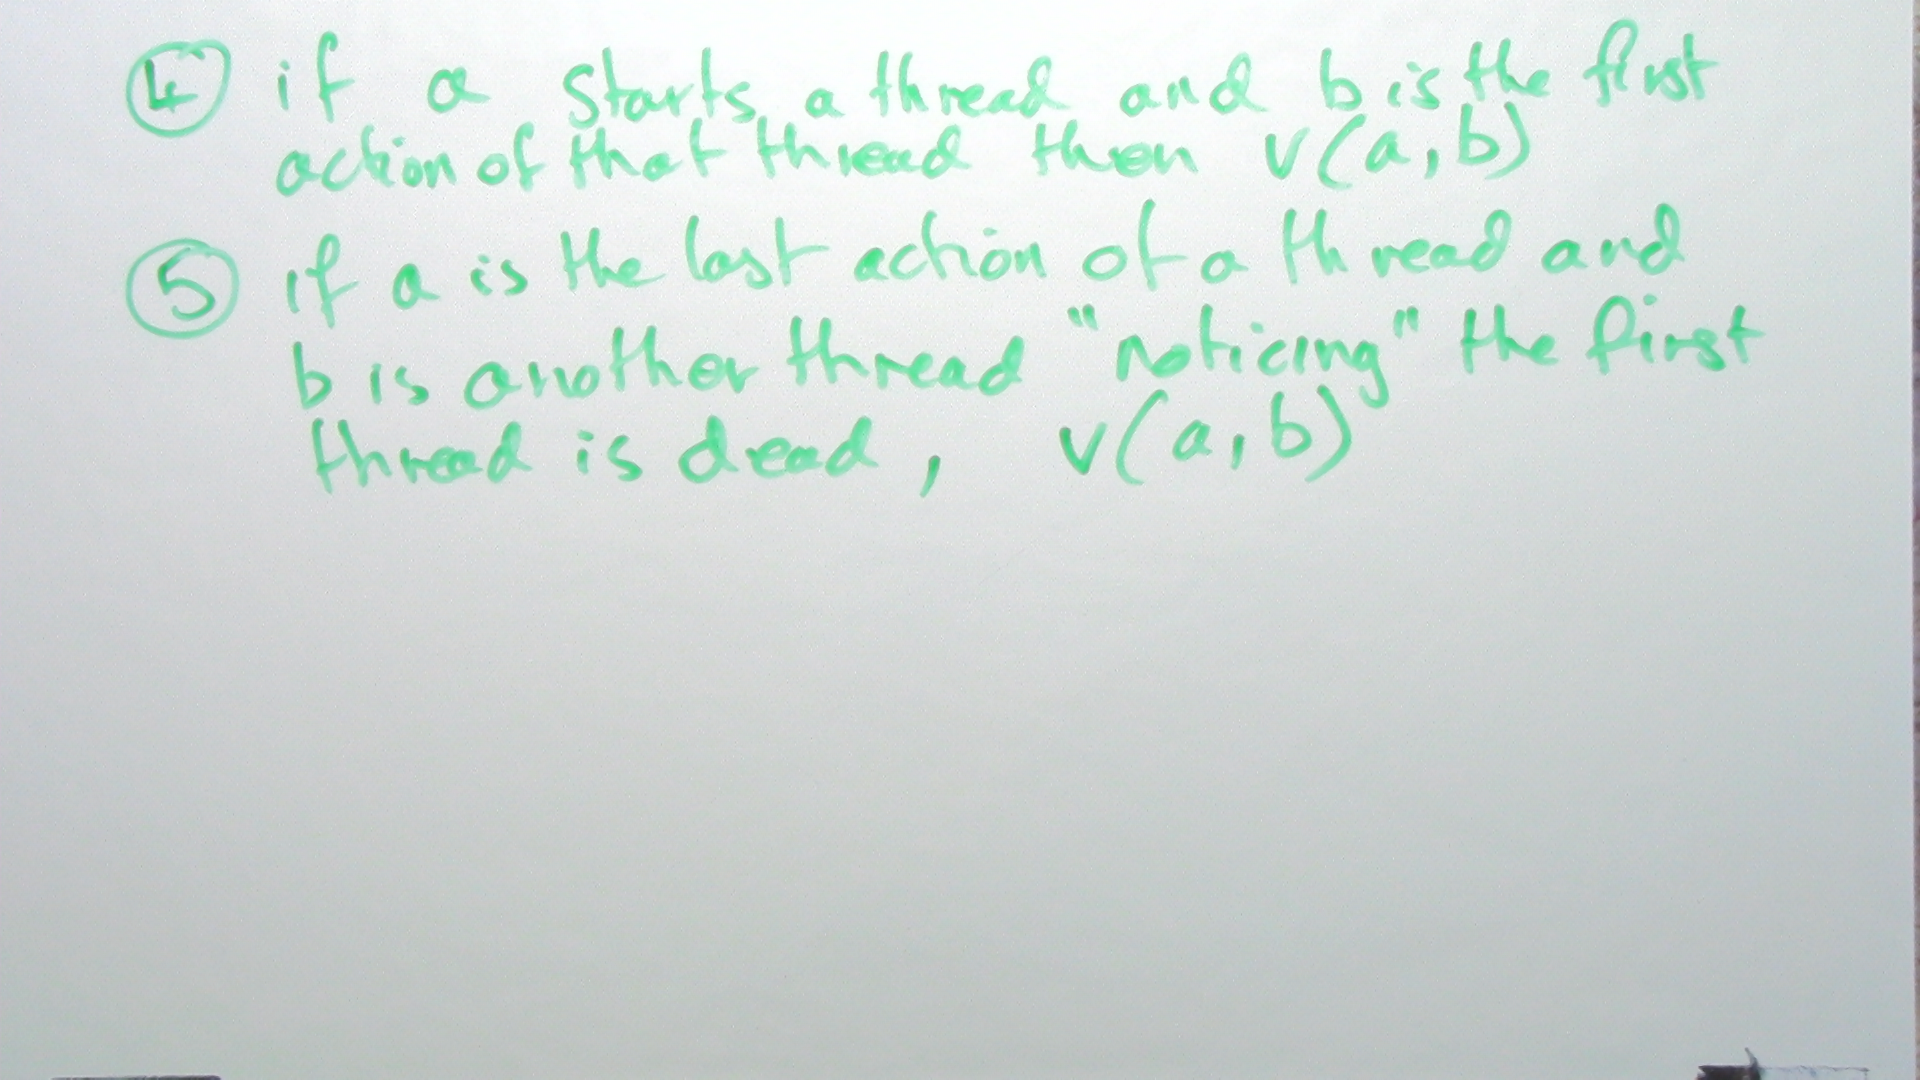 ④ if a starts a thread and b is the first
action of that thread then v(a,b)
⑤ if a is the last action of a thread and
b is another thread "noticing" the first
thread is dead, v(a,b)